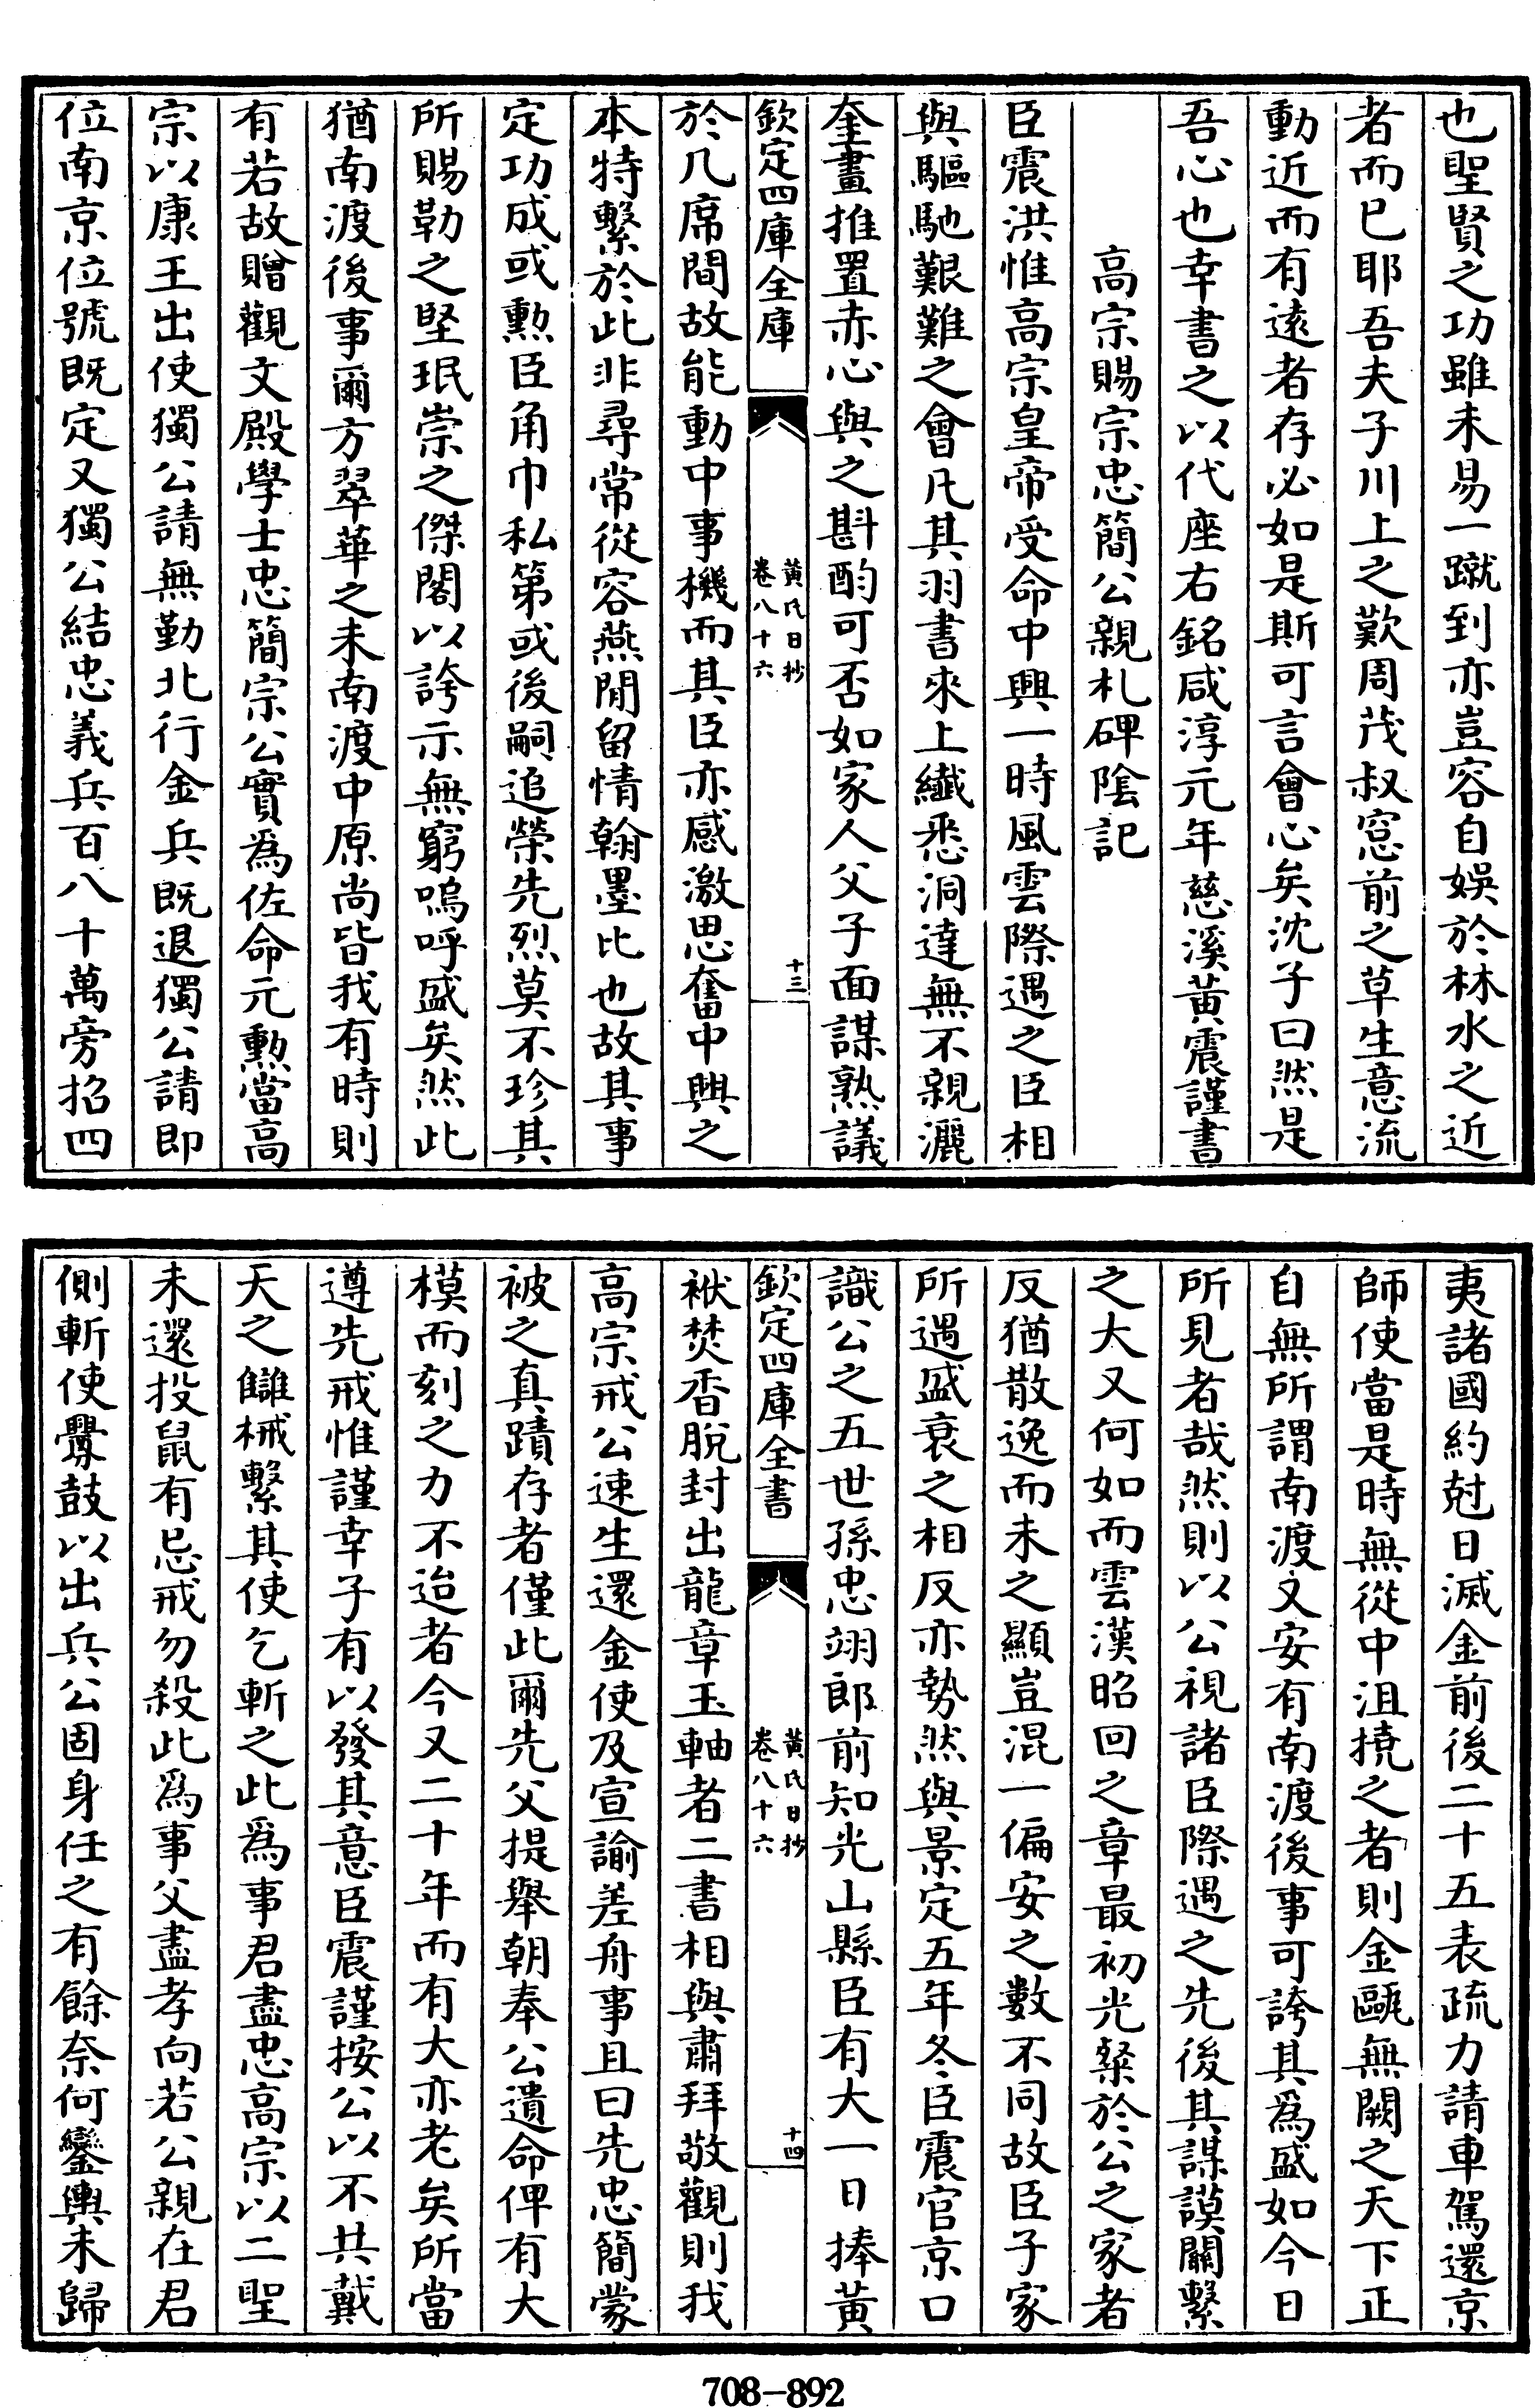 也聖賢之功雖未易一蹴到亦豈容自娛於林水之近
者而已耶吾夫子川上之歎周茂叔窓前之草生意流
動近而有遠者存必如是斯可言會心矣沈子曰然是
吾心也幸書之以代座右銘咸淳元年慈溪黃震謹書
高宗賜宗忠簡公親札碑陰記
臣震洪惟高宗皇帝受命中興一時風雲際遇之臣相
與驅馳艱難之會凡其羽書來上纎悉洞達無不親灑
奎畫推置赤心與之斟酌可否如家人父子面謀熟議
欽定四庫全庫
黃氏日抄
卷八十六
十三
於几席間故能動中事機而其臣亦感激思奮中興之
本特繫於此非尋常從容燕閒留情翰墨比也故其事
定功成或勲臣角巾私第或後嗣追榮先烈莫不珍其
所賜勒之堅珉崇之傑閣以誇示無窮嗚呼盛矣然此
猶南渡後事爾方翠華之未南渡中原尚皆我有時則
有若故贈觀文殿學士忠簡宗公實為佐命元勲當高
宗以康王出使獨公請無勤北行金兵既退獨公請即
位南京位號既定又獨公結忠義兵百八十萬旁招四
夷諸國約尅日滅金前後二十五表疏力請車駕還京
師使當是時無從中沮撓之者則金甌無闕之天下正
自無所謂南渡文安有南渡後事可誇其為盛如今日
所見者哉然則以公視諸臣際遇之先後其謀謨關繫
之大又何如而雲漢昭回之章最初光粲於公之家者
反猶散逸而未之顯豈混一偏安之數不同故臣子家
所遇盛衰之相反亦勢然與景定五年冬臣震官京口
識公之五世孫忠翊郎前知光山縣臣有大一日捧黃
欽定四庫全書
黃氏日抄
卷八十六
十四
袱焚香脫封出龍章玉軸者二書相與肅拜敬觀則我
高宗戒公速生還金使及宣諭差舟事且曰先忠簡蒙
被之真蹟存者僅此爾先父提舉朝奉公遺命俾有大
模而刻之力不迨者今又二十年而有大亦老矣所當
遵先戒惟謹幸子有以發其意臣震謹按公以不共戴
天之讎械繫其使乞斬之此為事君盡忠高宗以二聖
未還投鼠有忌戒勿殺此為事父盡孝向若公親在君
側斬使釁鼓以出兵公固身任之有餘奈何鑾輿未歸
708-892